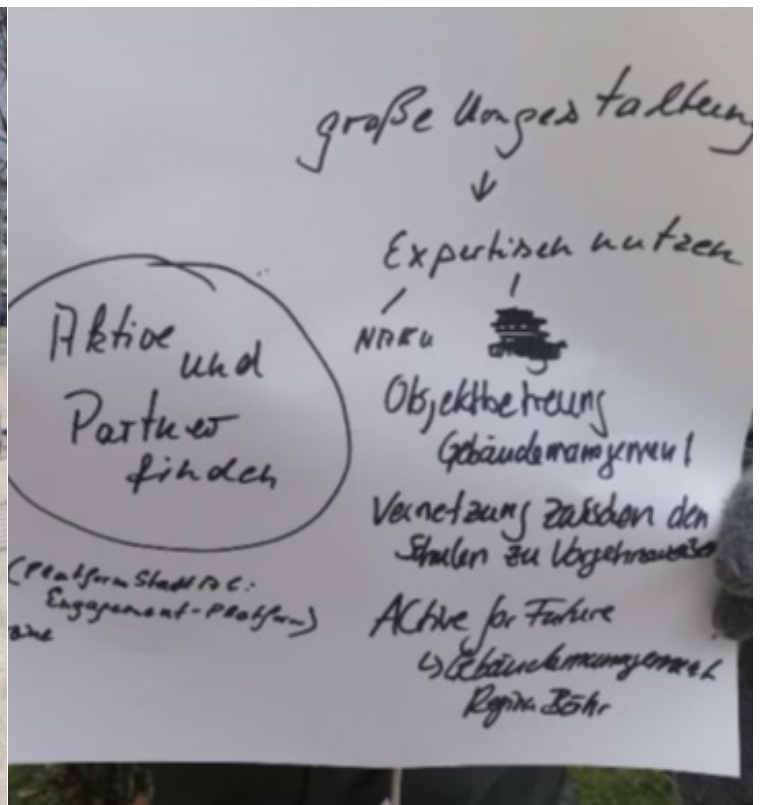 große Umgestaltung
↓
Expertisen nutzen
NABU
Objektbetreung
Gebäudemanagement
Vernetzung zwischen den
Schulen zu
Active for Future
↳ Gebäudemanagement
Regina Böhr
Aktive
und
Partner
finden
(Plattform Stadt AC:
Engagement-Plattform)